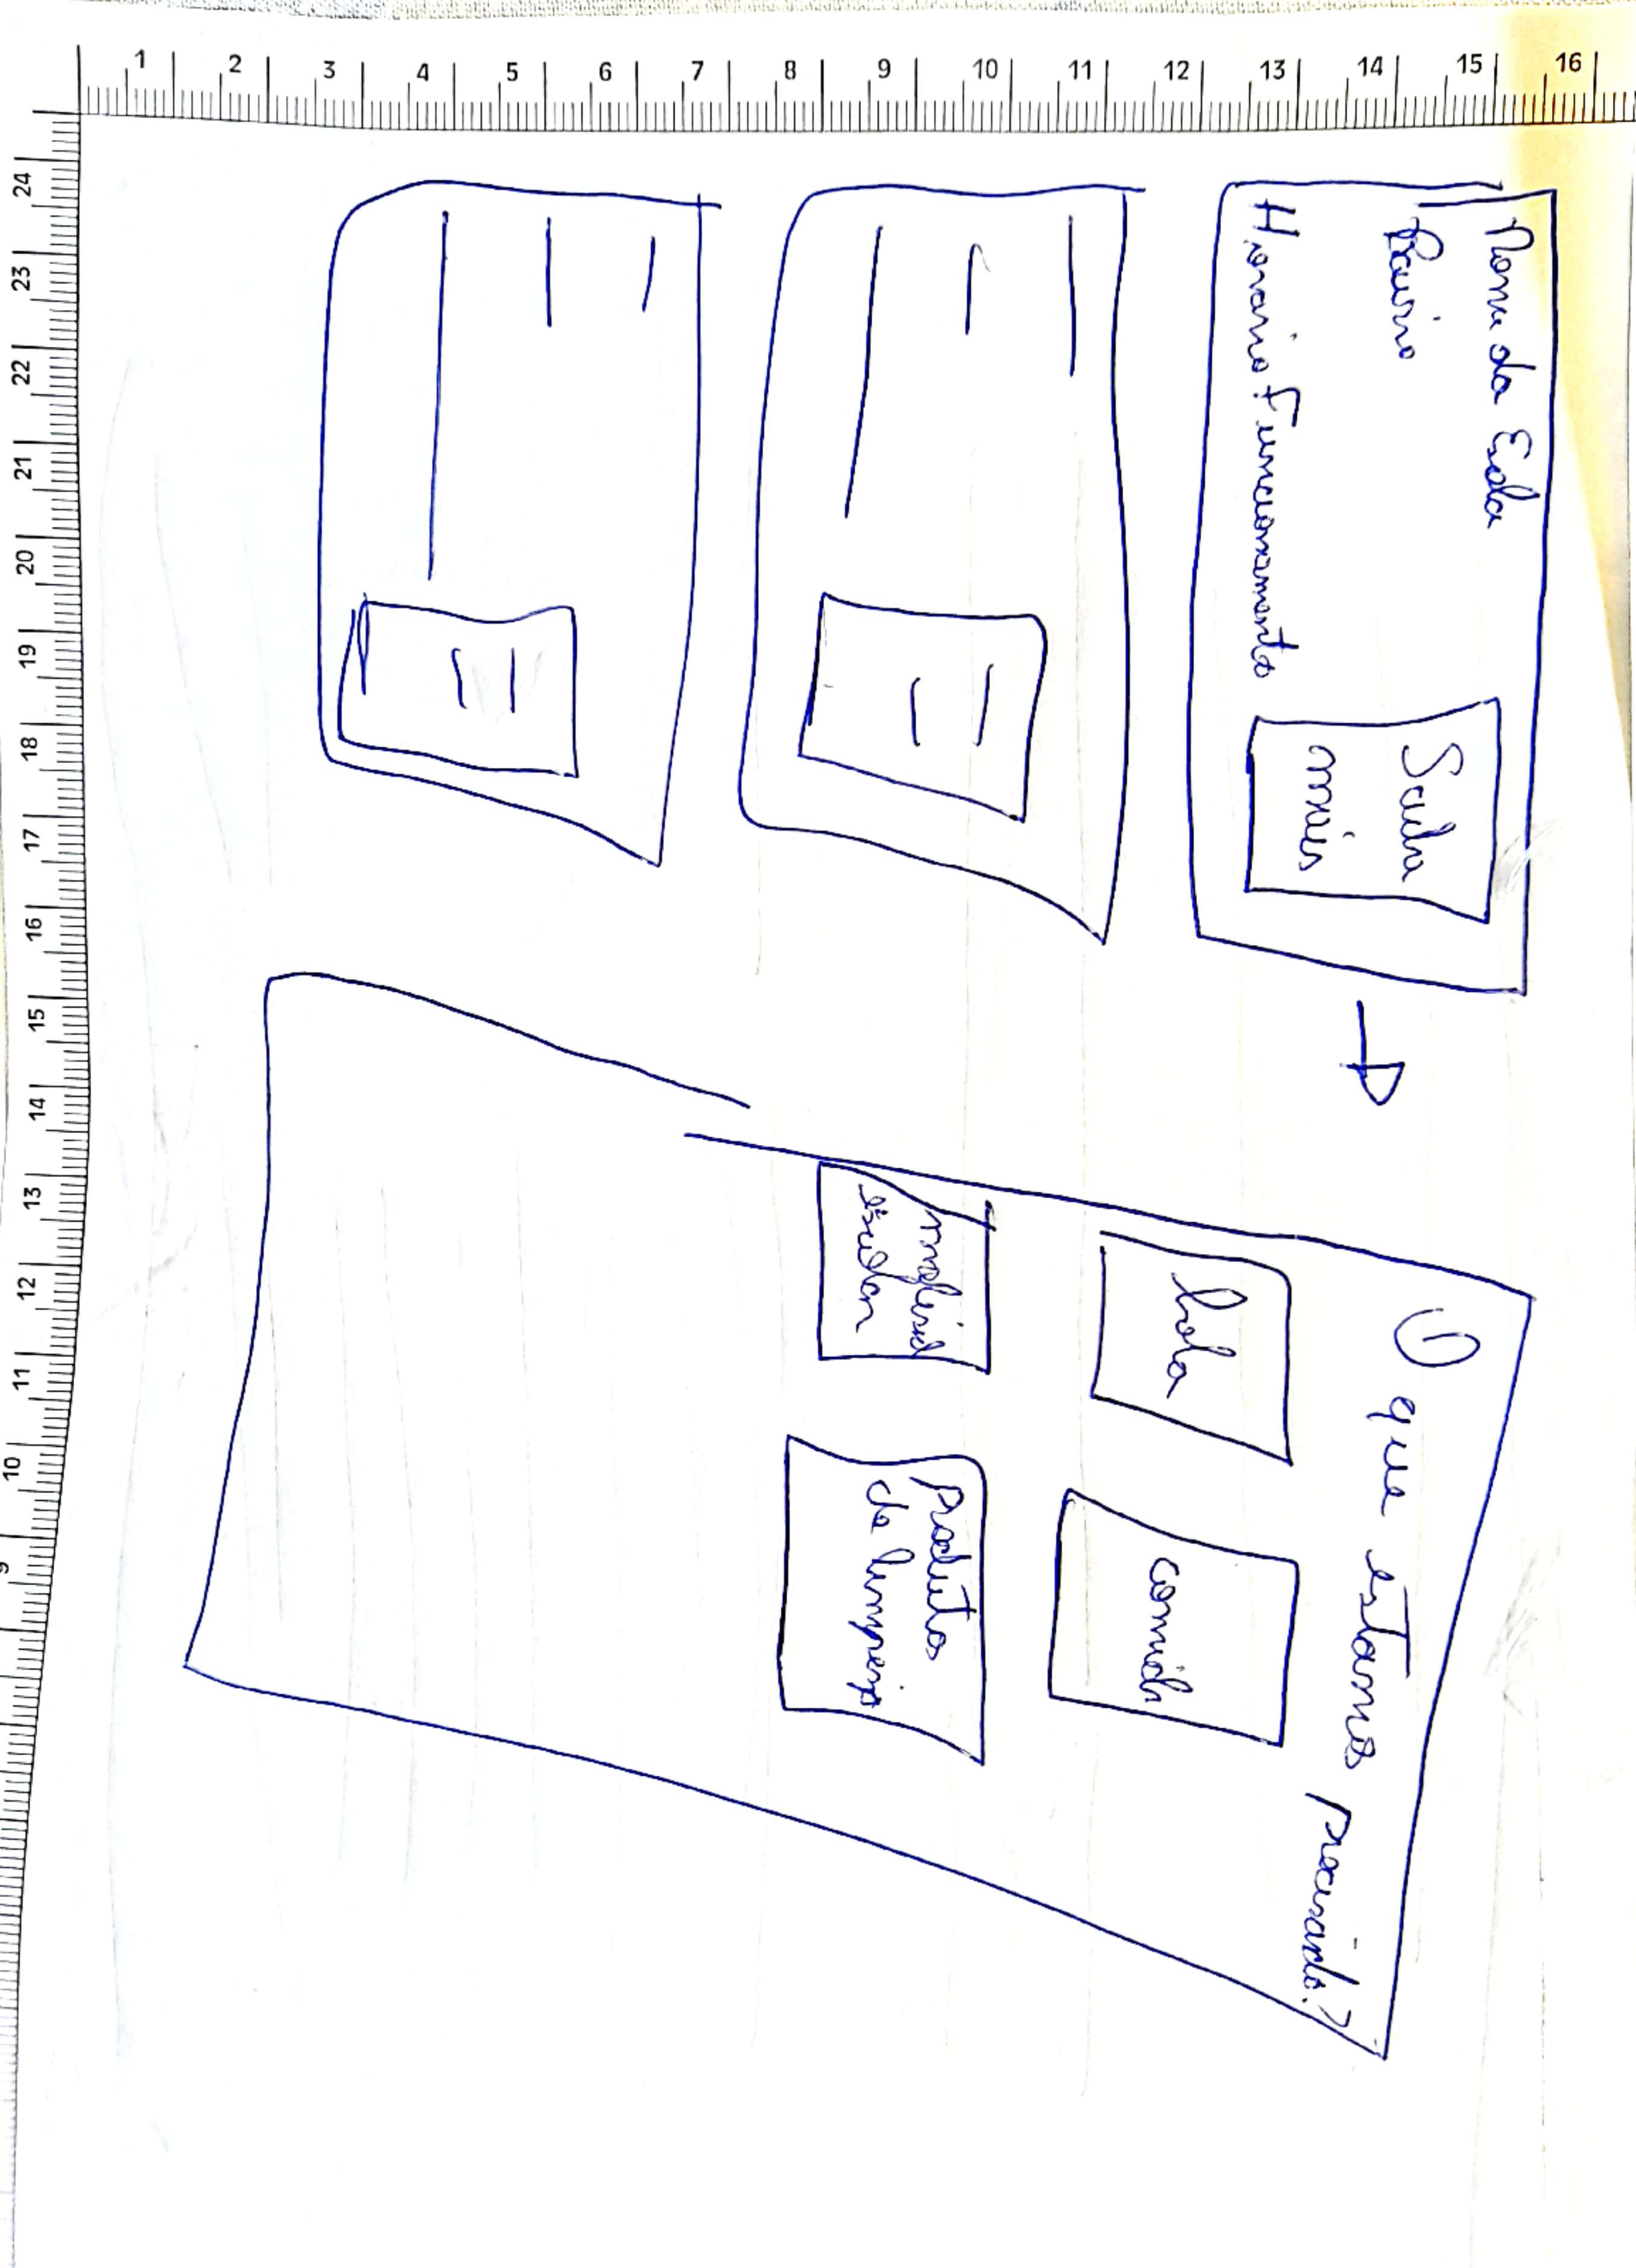 1 2 3 4 5 6 7 8 9 10 11 12 13 14 15 16
24
23
22
21
20
19
18
17
16
15
14
13
12
11
10
9
Nome da Escola
Bairro
Horario Funcionamento
Saiba
mais
O que estamos precisando?
bola
comida
material
escolar
produtos
de limpeza